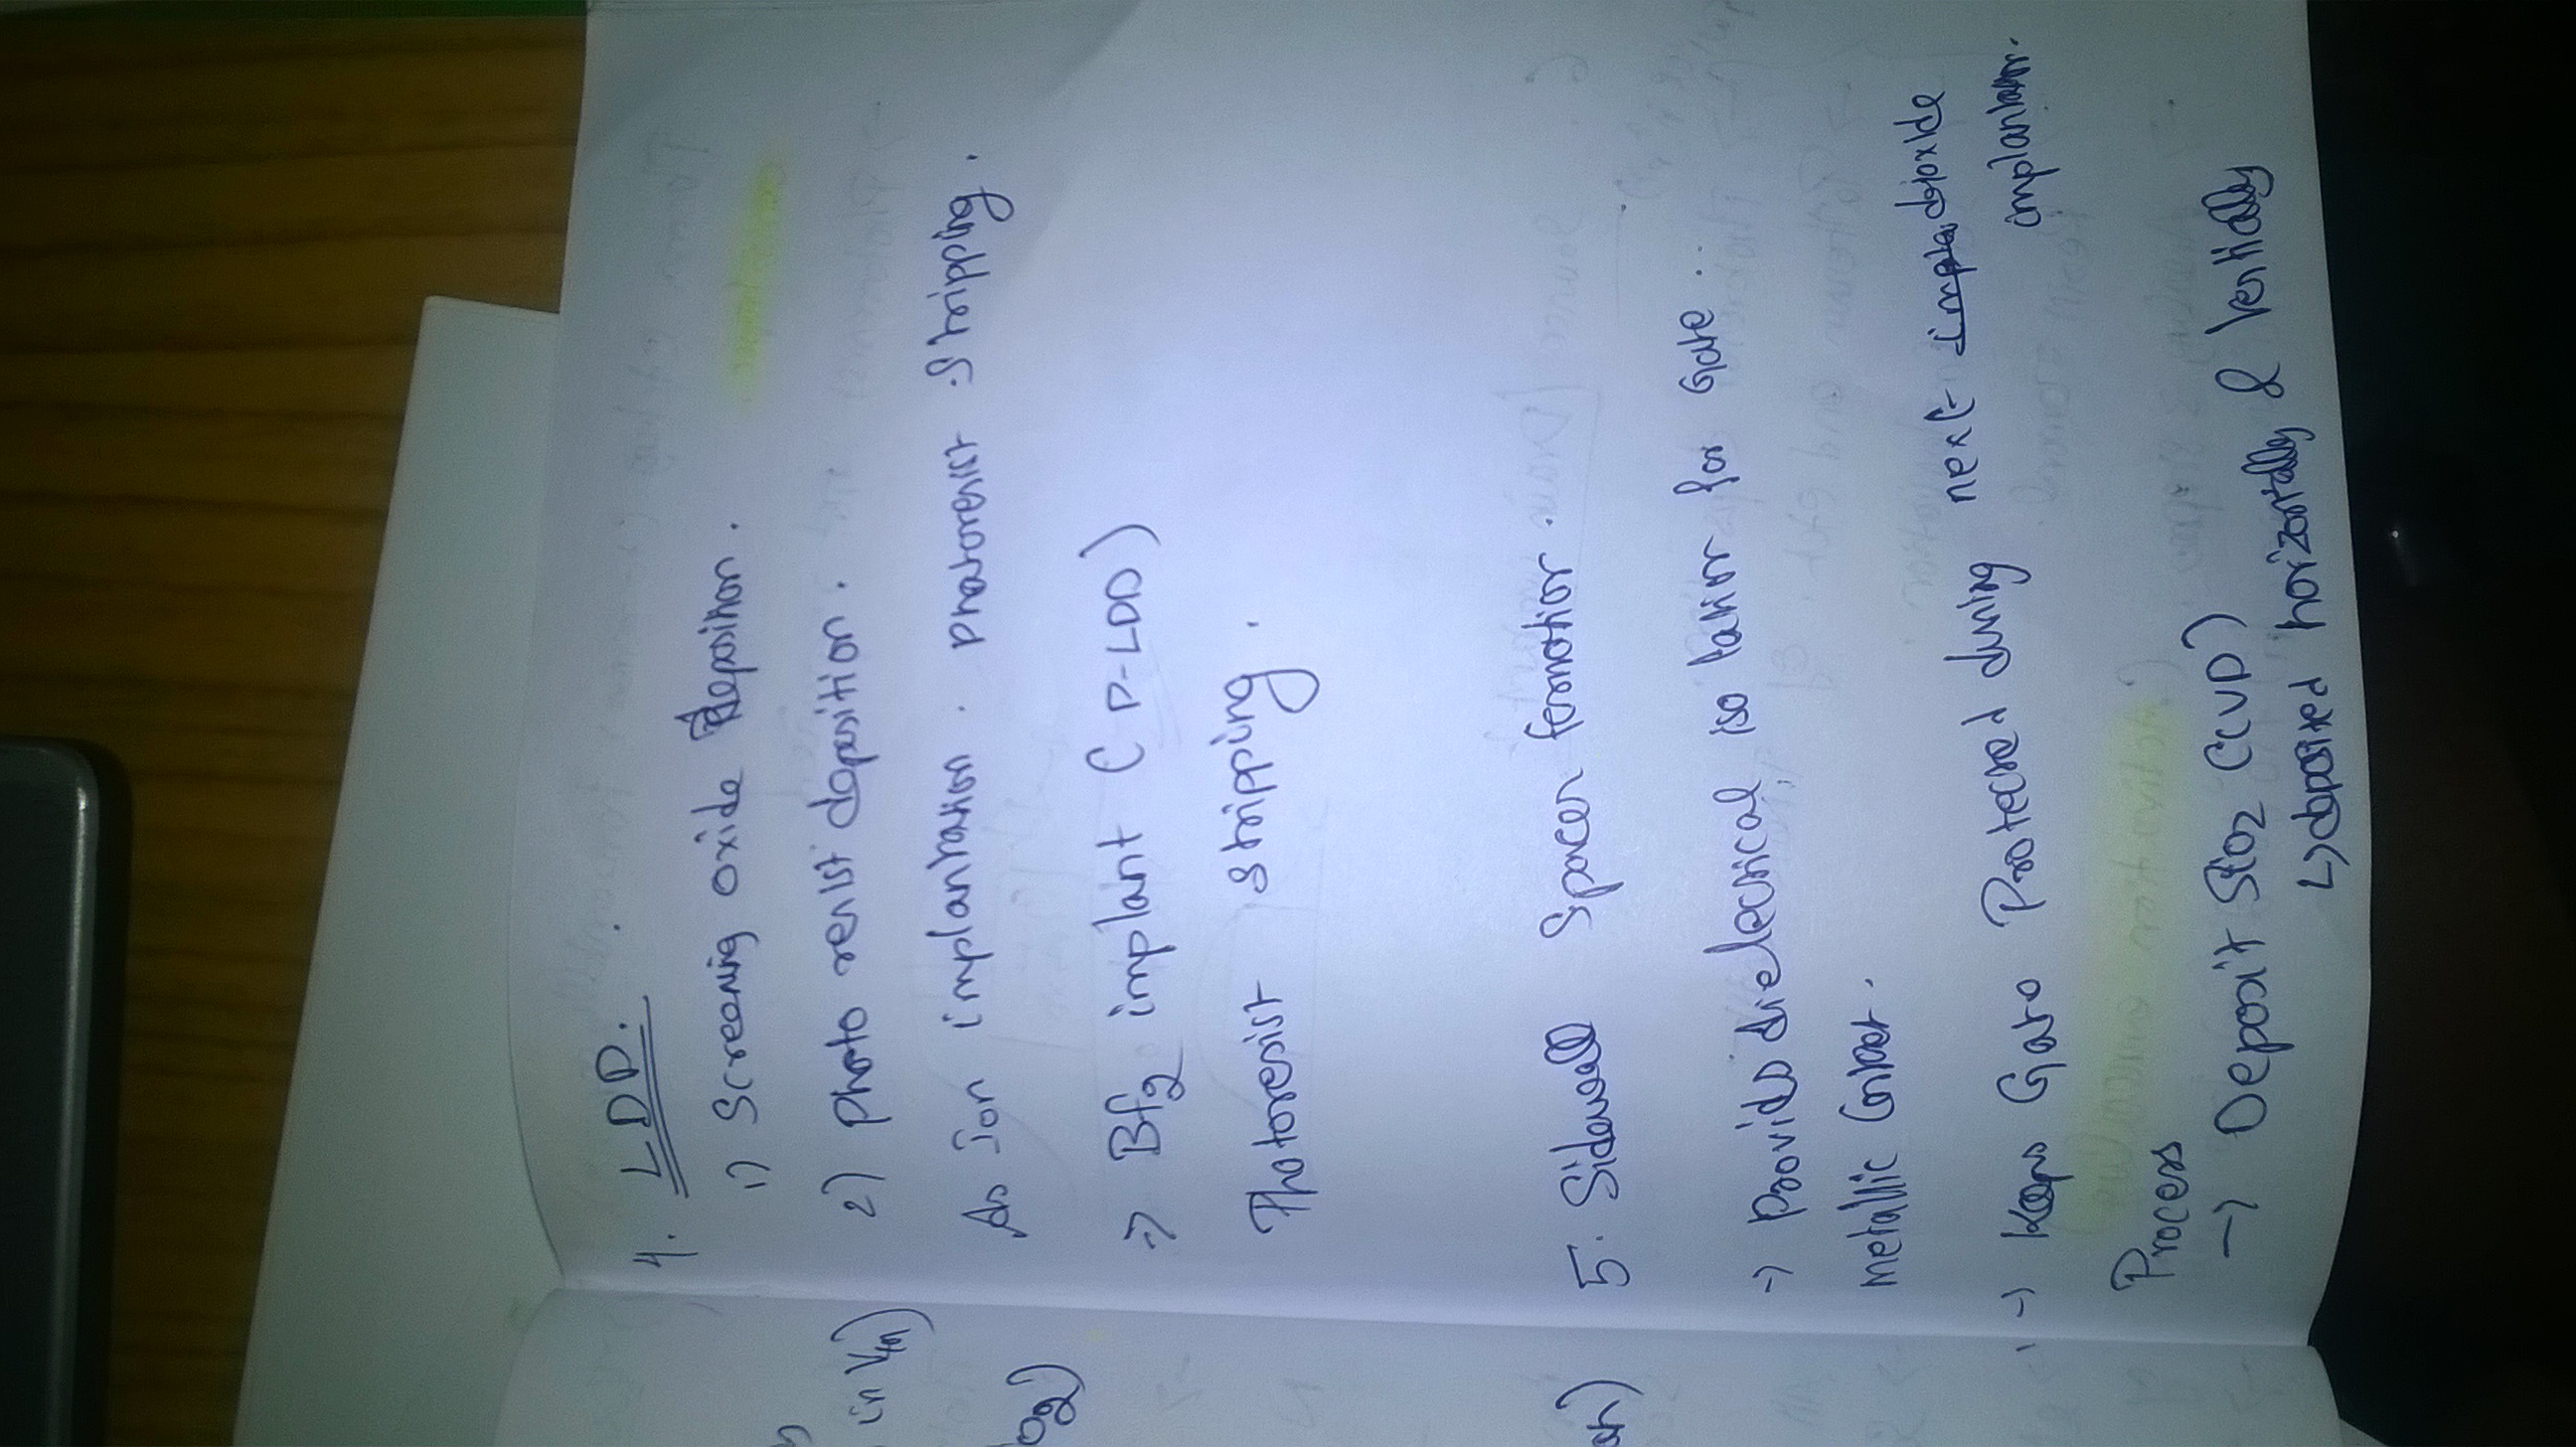 4. LDD.
1) Screening oxide Deposition.
2) Photo resist deposition.
As Ion implantation. Photoresist Stripping.
=> Bf2 implant (P-LDD)
Photoresist stripping.
5. Sidewall Spacer formation.
-> Provids dielectrical isolation for Gate..
metallic Contact.
-> Keeps Gate Protected during next
implantation.
Process
-> Deposit SiO2 (CVD)
↳ deposited horizontally & Vertically
in Vth)
O2)